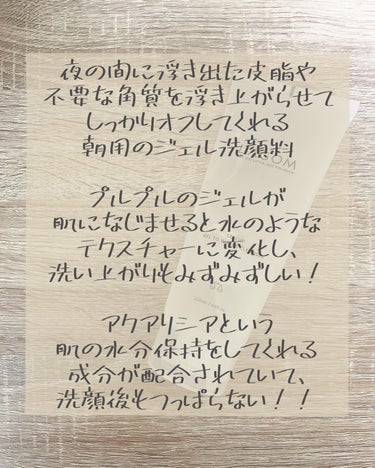 夜の間に浮き出た皮脂や
不要な角質を浮き上がらせて
しっかりオフしてくれる
朝用のジェル洗顔料
プルプルのジェルが
肌になじませると水のような
テクスチャーに変化し、
洗い上がりもみずみずしい！
アクアリシアという
肌の水分保持をしてくれる
成分が配合されていて、
洗顔後もつっぱらない！！